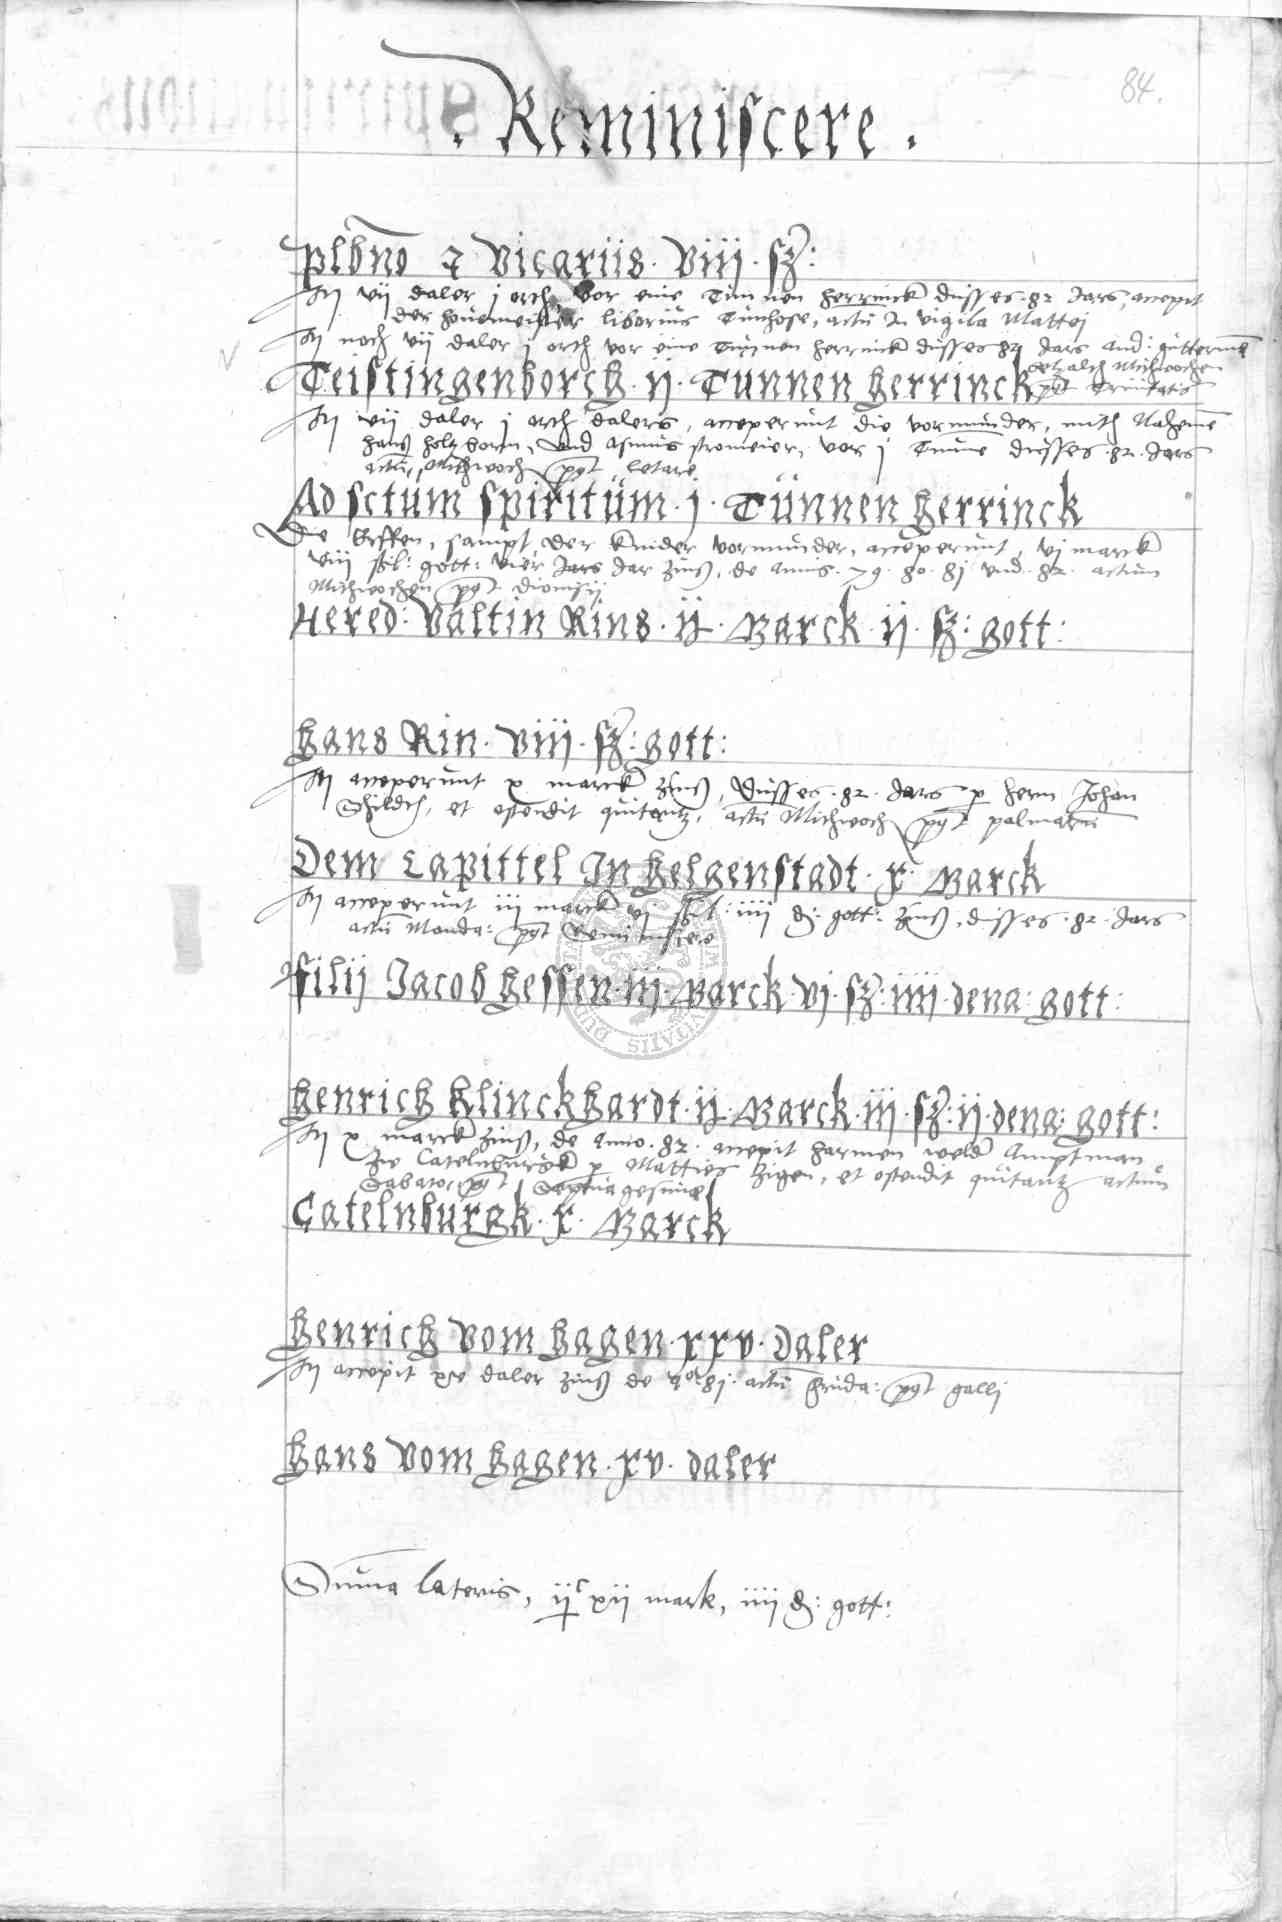 84.
. Reminiscere .
plbno & Vicariis . viii . ß:
vij daler j orth vor eine Tunnen herrinck dusses . 82 Jars, accepit
der houemeister liborius Tunhose, actu in vigila Mattei
noch vij daler j orth vor eine Tunnen herrinck dusses 82 Jars And:
Mithwochen
Teistingenborch . ij . Tunnen herrinck pt Trinitatis
vij daler j orth dalers, acceperunt die vormunder, mith Nahemen
hans holtzborn, vnd asmus stromeier, vor j Tunne dusses . 82 . Jars
actu, Mithwoch pt letare
Ad sctum spiritum . j . Tunnen herrinck
De Erffen, sampt der kinder vormunder, acceperunt vj marck
viij ßl: gott: vier Jars Jar Zinß, de Annis . 79 . 80 . 8j vnd . 82 . actum
Mithwochen pt dionisij
Hered: Valtin Rins . ij . Marck . ij . ß: gott:
Hans Rin . viii . ß: gott:
acceperunt x marck Zinß, dusses . 82 . Jars p hern Johan
et ostendit quitantz, actu Mithwoch pt palmaru
Dem Capittel In Helgenstadt . x . Marck
acceperunt iij marck vj ßl: iiij d: gott: Zinß, disses . 82 . Jars
actu Monda: pt Reminiscere
filij Jacob Hessen . iij . Marck . vj . ß: iiij . dena: gott:
Henrich Klinckhardt . ij . Marck . iij . ß: ij . dena: gott:
x marck Zinß, de Anno . 82 . accepit harmen Amptman
Zw Catelnburgk p Matties Zigen, et ostendit quitantz actum
Sabato, pt Septuagesime
Catelnburgk . x . Marck
Henrich vom Hagen . xxv . daler
accepit xxv daler Zinß de 8j . actu frida: pt galli
Hans vom Hagen . xv . daler
Suma lateris, ijc xij mark, iiij d: gott: